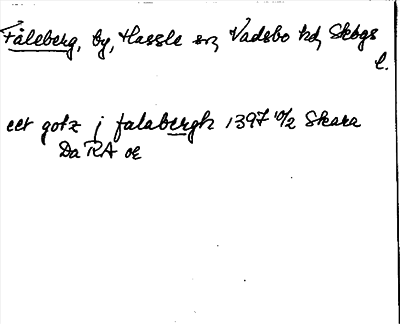 Fåleberg, by, Hassle sn, Vadsbo hd, Skbgs
l.
eet gotz j falabergh 1397 10/2 Skara
Da RA or